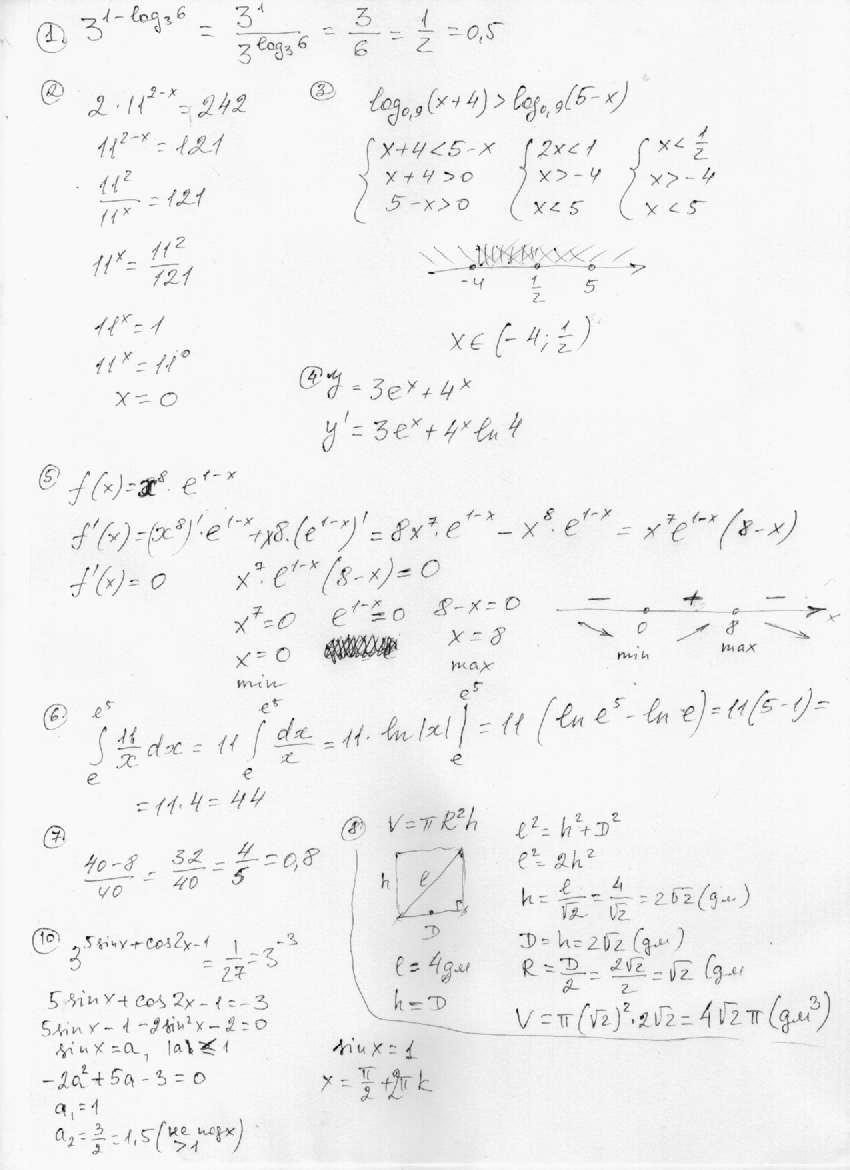 ① 3^(1-log₃6) = 3¹/3^(log₃6) = 3/6 = 1/2 = 0,5
② 2·11^(2-x) = 242
11^(2-x) = 121
11²/11^x = 121
11^x = 11²/121
11^x = 1
11^x = 11⁰
x = 0
③ log₀,₉(x+4) > log₀,₉(5-x)
{ x+4<5-x { 2x<1 { x<1/2
x+4>0 x>-4 x>-4
5-x>0 x<5 x<5
-4 1/2 5
x∈(-4; 1/2)
④ y = 3e^x + 4^x
y' = 3e^x + 4^x ln 4
⑤ f(x) = x⁸·e^(1-x)
f'(x) = (x⁸)'·e^(1-x) + x⁸·(e^(1-x))' = 8x⁷·e^(1-x) - x⁸·e^(1-x) = x⁷e^(1-x)(8-x)
f'(x) = 0 x⁷·e^(1-x)(8-x) = 0
x⁷=0 e^(1-x)=0 8-x=0
x=0 x=8
min max
− + −
0 8 x
min max
⑥ ∫_e^(e⁵) 11/x dx = 11 ∫_e^(e⁵) dx/x = 11·ln|x| |_e^(e⁵) = 11(ln e⁵ - ln e) = 11(5-1) =
= 11·4 = 44
⑦ (40-8)/40 = 32/40 = 4/5 = 0,8
⑧ V = πR²h
h l
D
l = 4дм
h = D
l² = h² + D²
l² = 2h²
h = l/√2 = 4/√2 = 2√2 (дм)
D = h = 2√2 (дм)
R = D/2 = 2√2/2 = √2 (дм
V = π(√2)²·2√2 = 4√2π (дм³)
⑩ 3^(5sinx+cos2x-1) = 1/27 = 3^(-3)
5sinx + cos2x - 1 = -3
5sinx - 1 - 2sin²x - 2 = 0
sinx = a, |a| ≤ 1
-2a² + 5a - 3 = 0
a₁ = 1
a₂ = 3/2 = 1,5 (не подх) >1
sinx = 1
x = π/2 + 2πk